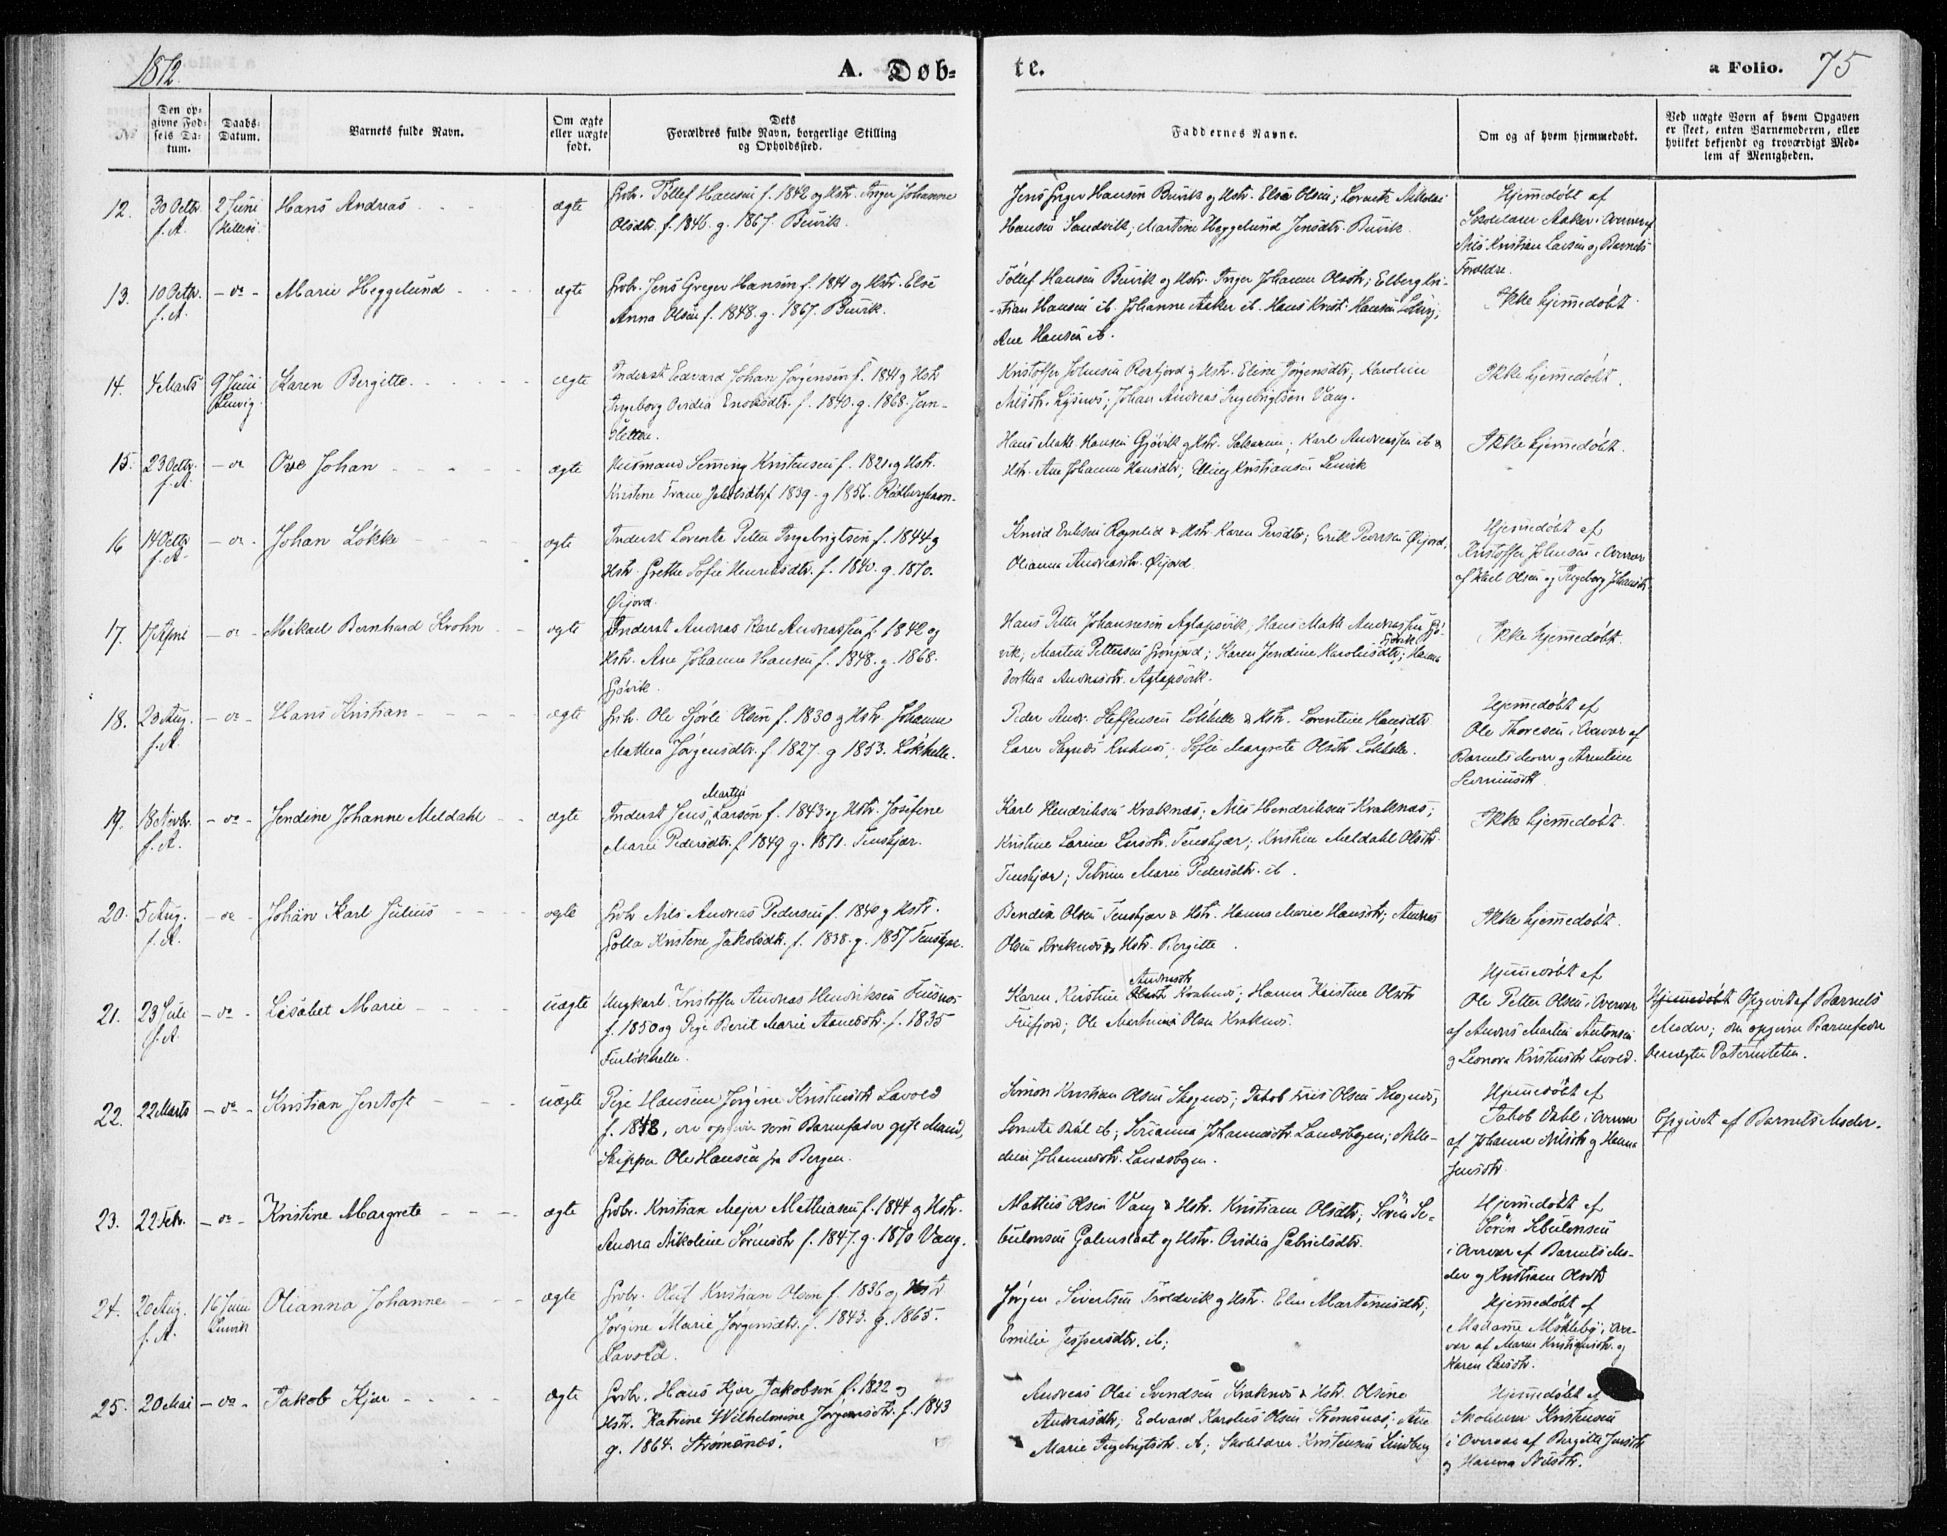 1872.
A. Døb-
te.
a Folio. 75
No
Den op-
givne Fød-
sels Da-
tum.
Daabs-
Datum.
Barnets fulde Navn.
Om ægte
eller uægte
født.
Dets
Forældres fulde Navn, borgerlige Stilling
og Opholdssted.
Faddernes Navne.
Om og af hvem hjemmedøbt.
Ved uægte Børn af hvem Opgaven
er skeet, enten Barnemoderen, eller
hvilket bekjendt og troværdigt Med-
lem af Menigheden.
12. 30 Octbr. f. A. 2 Juni Hans Andreas ægte
Grbr. Tollef Hansen f. 1842 og Hstr. Inger Johanne
Olsdtr. f. 1846. g. 1867. Buvik.
Jens Greger Hansen Buvik og Hstr. Else Olsen; Lorents Nikolai
Hansen Sandvik; Martine Heggelund Jensdtr. Buvik.
Hjemmedøbt af
Skolelærer Aaker i Overvær af
Nils Kristian Larsen og Barnets
Forældre.
13. 10 Octbr. f. A. - do - Marie Heggelund ægte
Grbr. Jens Greger Hansen f. 1841 og Hstr. Else
Anna Olsen f. 1848. g. 1867. Buvik.
Tollef Hansen Buvik og Hstr. Inger Johanne Olsdtr; Elberg Kri-
stian Hansen ib. Johanne Aaker ib. Hans Krist. Hansen
Ane Hansen ib.
Ikke hjemmedøbt.
14. 4 Marts 9 Juni Lenvig Karen Bergitte ægte
Inderst Edvard Johan Jørgensen f. 1841 og Hstr
Ingeborg Ovidia Enoksdtr. f. 1840. g. 1868.
Kristoffer Johnsen Rosfjord og Hstr. Eline Jørgensdtr; Karoline
Nilsdtr. Lysnes; Johan Andreas Ingebrigtsen Vang.
Ikke hjemmedøbt.
15. 23 Octbr. f. A. - do Ove Johan ægte
Husmand Kristensen f. 1821 og Hstr.
Kristine Jakobsdtr f 1839. g 1856.
Hans Mathi Hansen Gjøvik og Hstr. ; Karl Andreassen ib &
Hstr. Ane Johanne Hansdtr; Kristiansen Lenvik
Ikke hjemmedøbt.
16 14 Octbr f. A. - do - Johan Løkke ægte
Inderst Lorents Petter Ingebrigtsen f. 1844 og
Hstr. Grethe Sofie Henriksdtr. f. 1840. g. 1870.
Øijord.
Knud Eriksen Rognlid & Hstr Karen Persdtr; Erik Pedersen Øijord,
Olianna Andreasdtr. Øijord.
Hjemmedøbt af
Kristoffer Johnsen i Overvær
af Karl Olsen og Ingeborg Johansdtr.
17. 17 April - do - Mikael Bernhard Krohn ægte
Inderst Andreas Karl Andreassen f. 1842 og
Hstr. Ane Johanne Hansen f. 1848. g. 1868.
Gjøvik.
Hans Petter Johannesen Aglapsvik, Hans Mathi Andreassen Gjø-
vik; Martin Pettersen Grønjord; Karen Jendine Karolusdtr Gjøvik; Hanna
Dorthea Andreasdtr. Aglapsvik.
Ikke hjemmedøbt.
18. 23 Aug. f. A. - do - Hans Kristian ægte
Grbr. Ole Olsen f. 1830 og Hstr. Johanne
Mathea Jørgensdtr. f. 1827. g 1853. Løkhelle.
Peder Andr. Steffensen Løkhelle & Hstr. Lorentine Hansdtr
; Sofie Margrete Olsdtr Løkhelle.
Hjemmedøbt af
Ole Thoresen i Overvær af
Barnets Moder og Arentine
19. 18 Novbr. f. A. - do - Jendine Johanne Meldahl ægte
Inderst Jens Martin Larsen f. 1843 og Hstr. Josefine
Marie Pedersdtr. f 1849 g. 1871. Tenskjær.
Karl Hendriksen Kraknæs; Nils Hendriksen Kraknæs;
Kristine Larine Larsdtr. Tenskjær; Kristian Meldahl Olsdtr.
Tenskjær; Petrine Marie Pedersdtr. ib.
Ikke hjemmedøbt.
20. 5 Aug. f. A. - do - Johan Karl Julius ægte
Grbr Nils Andreas Pedersen f. 1840 og Hstr.
Golla Kristine Jakobsdtr. f. 1838. g. 1857 Tenskjær.
Bendix Olsen Tenskjær & Hstr. Hanna Marie Hansdtr; Andreas
Olsen Kraknæs & Hstr. Bergitte.
Ikke hjemmedøbt.
21. 23 Juli f. A. - do - Lisabet Marie uægte
Ungkarl. Kristoffer Andreas Hendriksen
f. 1850 og Pige Berit Marie f. 1835
Finløkhelle.
Karen Kirstine Andreasdtr Kraknæs; Hanna Kristine Olsdtr
Trefjord; Ole Martinus Olsen Kraknæs.
Hjemmedøbt af
Ole Petter Olsen i Overvær
af Anders Martin Antonsen
og Leonora Kristensdtr Lavold.
Hjemmedøbt Opgivet af Barnets
Moder; den opgivne Barnefader
benægter Paterniteten.
22. 22 Marts - do - Kristian Jentoft uægte
Pige Hansine Jørgine Kristensdtr Lavold
f. 1848, der opgiver som Barnefader gift Mand,
Skipper Ole Hansen fra Bergen.
Simon Kristian Olsen Skognes; Jakob Friis Olsen Skognes;
Lorentse Dahl ib; Serianna Johannesdtr. Landsbogen;
Johannesdtr. Landsbogen.
Hjemmedøbt af
Jakob Dahl i Overvær
af Johanne Nilsdtr og Hanna
Jensdtr.
Opgivet af Barnets Moder.
23. 22 Febr. - do - Kristine Margrete ægte
Grbr. Kristian Mejer Mathiasen f. 1844 og Hstr.
Andrea Nikoline Sørensdtr f. 1847. g. 1870 Vang.
Mathis Olsen Vang & Hstr. Kristiane Olsdtr; Søren Se-
bulonsen og Hstr. Ovidia Gabrielsdtr.
Hjemmedøbt af
Søren Sebulonsen
i Overvær af Barnets Mo-
der og Kristiane Olsdtr
24. 20 Aug. f. A. 16 Juni Lenvik Olianna Johanne ægte
Grbr. Oluf Kristian Olsen f. 1836 og Hstr
Jørgine Marie Jørgensdtr. f. 1843. g. 1865.
Lavold.
Jørgen Sivertsen Troldvik og Hstr. Elen Martinusdtr;
Emilie Jespersdtr. ib;
Hjemmedøbt af
Madame Møkleby i Over-
vær af Maren Kristiansdtr. og
Karen Larsdtr.
25. 20 Mai - do - Jakob Kjær ægte
Grbr. Hans Kjær Jakobsen f. 1822 og
Hstr. Katrine Wilhelmine Jørgensdtr. f. 1843
g. 1864. Strømsnæs.
Andreas Olai Svendsen Kraknæs & Hstr. Olsine
Andreasdtr; Edvard Karolius Olsen Strømsnæs; Ane
Marie Ingebrigtsdtr. ib; Skolelærer Kristensen Lindberg
Hjemmedøbt af
Skolelærer Kristensen
i Overvær af Bergitte Jensdtr
og Hanna Nilsdtr.